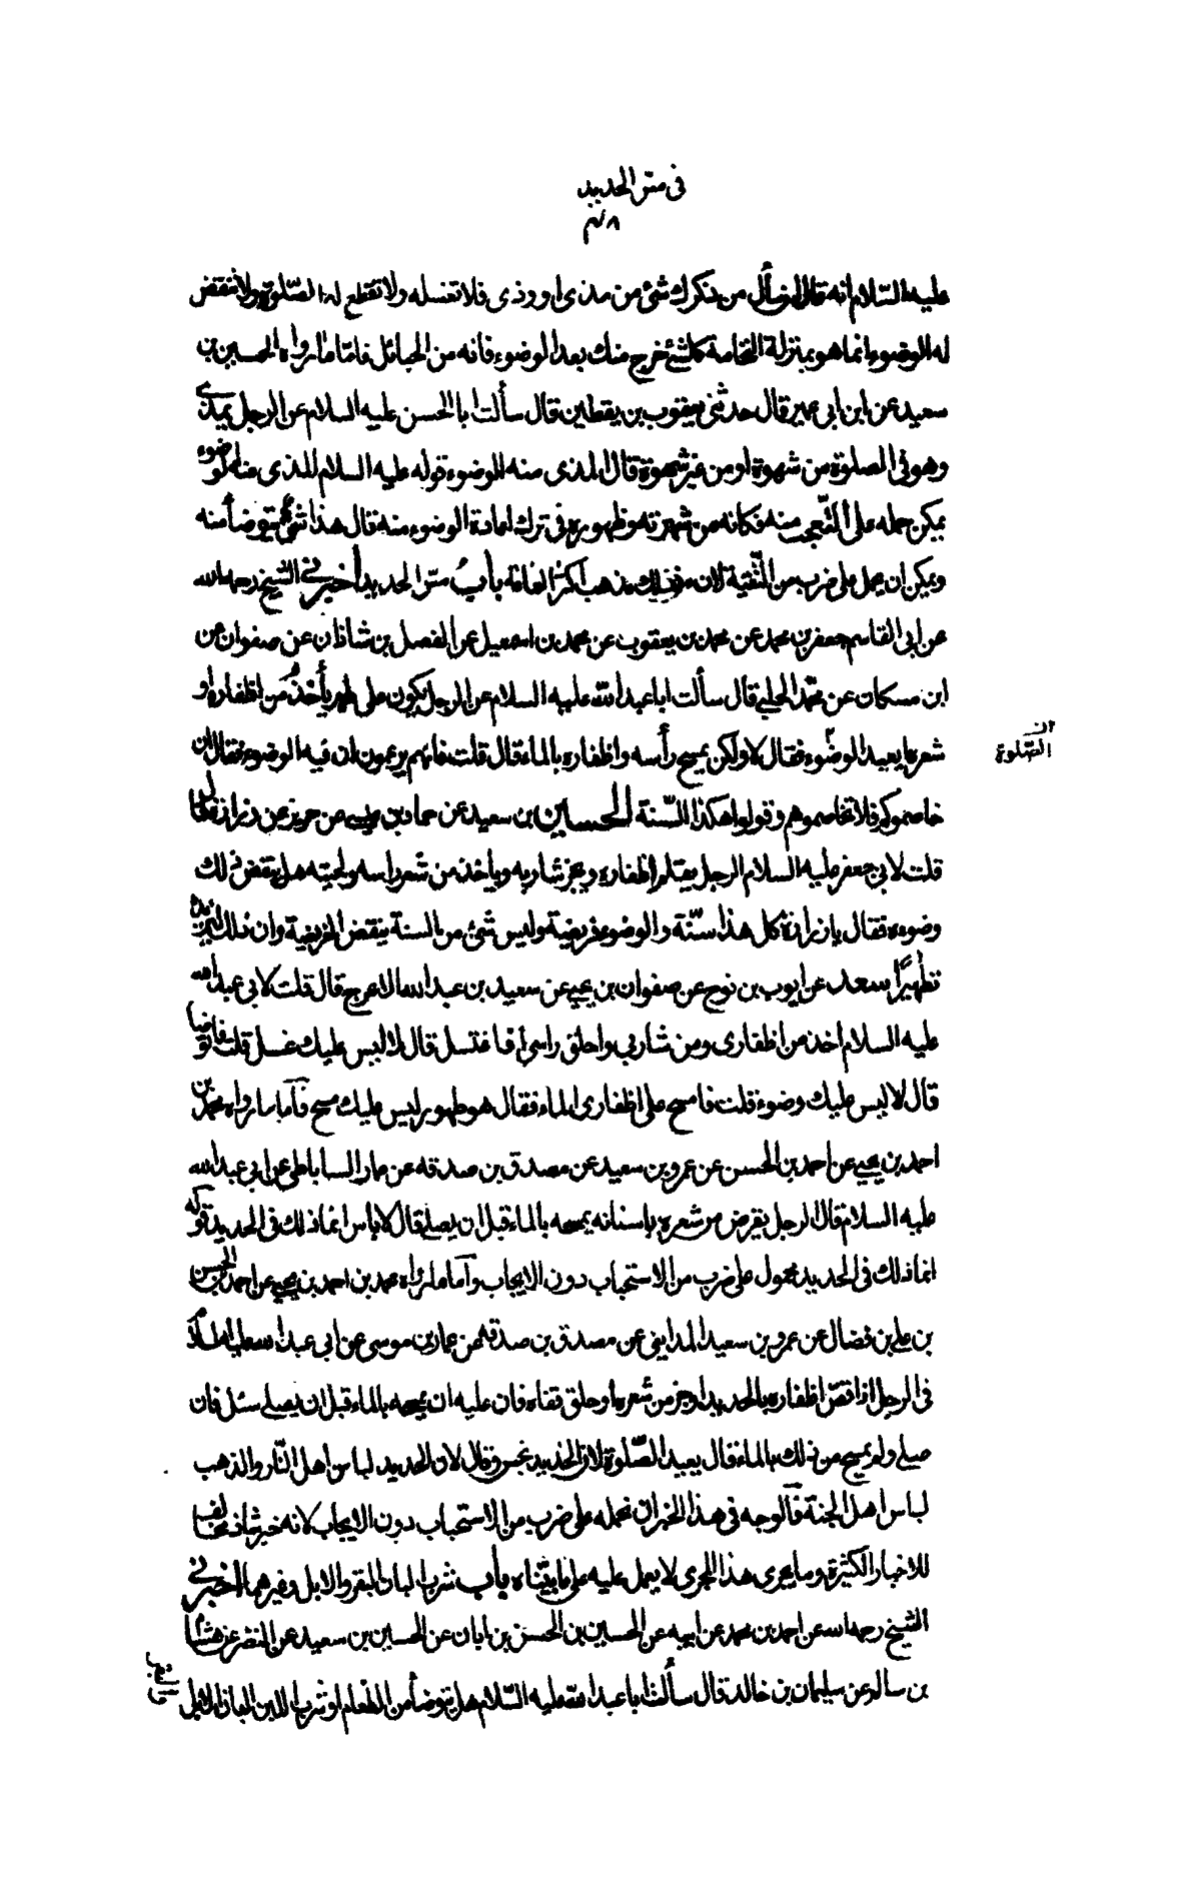 في مس الحديد
٤٨
عليه السلام انه قال ان سأل من ذكرك شئ من مذى او وذى فلا تغسله ولا تقطع له الصلوة ولا تنقض
له الوضوء انما هو بمنزلة النخامة كل شئ خرج منك بعد الوضوء فانه من الحبائل فاما ما رواه الحسين بن
سعيد عن ابن ابى عمير قال حدثنى يعقوب بن يقطين قال سألت ابا الحسن عليه السلام عن الرجل يمذى
وهو فى الصلوة من شهوة او من غير شهوة قال المذى منه الوضوء قوله عليه السلام المذى منه الوضوء
يمكن حمله على التعجب منه فكانه من شهرته وظهوره فى ترك اعادة الوضوء منه قال هذا شئ يتوضأ منه
ويمكن ان يحمل على ضرب من التقية لان ذلك مذهب اكثر العامة باب مس الحديد أخبرنى الشيخ رحمه الله
عن ابى القاسم جعفر بن محمد عن محمد بن يعقوب عن محمد بن اسمعيل عن الفضل بن شاذان عن صفوان عن
ابن مسكان عن محمد الحلبي قال سألت ابا عبد الله عليه السلام عن الرجل يكون على طهر يأخذ من اظفاره او
شعره ايعيد الوضوء فقال لا ولكن يمسح رأسه واظفاره بالماء قال قلت فانهم يزعمون ان فيه الوضوء فقال ان
ان
الصلوة
خاصموكم فلا تخاصموهم وقولوا هكذا السنة الحسين بن سعيد عن حماد بن عيسى عن حريز عن زرارة قال
قلت لابى جعفر عليه السلام الرجل يقلم اظفاره ويجز شاربه ويأخذ من شعر راسه ولحيته هل ينقض ذلك
وضوءه فقال يا زرارة كل هذا سنة والوضوء فريضة وليس شئ من السنة ينقض الفريضة وان ذلك ليزيده
تطهيرًا سعد عن ايوب بن نوح عن صفوان بن يحيى عن سعيد بن عبد الله الاعرج قال قلت لابى عبد الله
عليه السلام اخذ من اظفارى ومن شاربي واحلق راسى أفا غتسل قال لا ليس عليك غسل قلت فاتوضأ
قال لا ليس عليك وضوء قلت فامسح على اظفارى الماء فقال هو طهور ليس عليك مسح فآما ما رواه محمد بن
احمد بن يحيى عن احمد بن الحسن عن عمرو بن سعيد عن مصدق بن صدقه عن عمار الساباطى عن ابى عبد الله
عليه السلام قال الرجل يقرض من شعره باسنانه يمسحه بالماء قبل ان يصلى قال لا باس انما ذلك فى الحديد قوله
انما ذلك فى الحديد محمول على ضرب من الاستحباب دون الايجاب وآما ما رواه محمد بن احمد بن يحيى عن احمد بن الحسن
بن على بن فضال عن عمرو بن سعيد المدايني عن مصدق بن صدقه عن عمار بن موسى عن ابى عبد الله عليه السلام
فى الرجل اذا قص اظفاره بالحديد او جز من شعره او حلق قفاه فان عليه ان يمسحه بالماء قبل ان يصلى سئل فان
صلى ولم يمسح من ذلك بالماء قال يعيد الصلوة لان الحديد نجس وقال لان الحديد لباس اهل النار والذهب
لباس اهل الجنة فآلوجه فى هذا الخبر ان نحمله على ضرب من الاستحباب دون الايجاب لانه خبر شاذ مخالف
للاخبار الكثيرة وما يجرى هذا المجرى لا يعمل عليه على ما بيناه باب شرب البان البقر والابل وغيرهما اخبرنى
الشيخ رحمه الله عن احمد بن محمد عن ابيه عن الحسين بن الحسن بن ابان عن الحسين بن سعيد عن النضر عن هشام
بن سالم عن سليمان بن خالد قال سألت ابا عبد الله عليه السلام هل يتوضأ من الطعام او شرب اللبن البان الابل